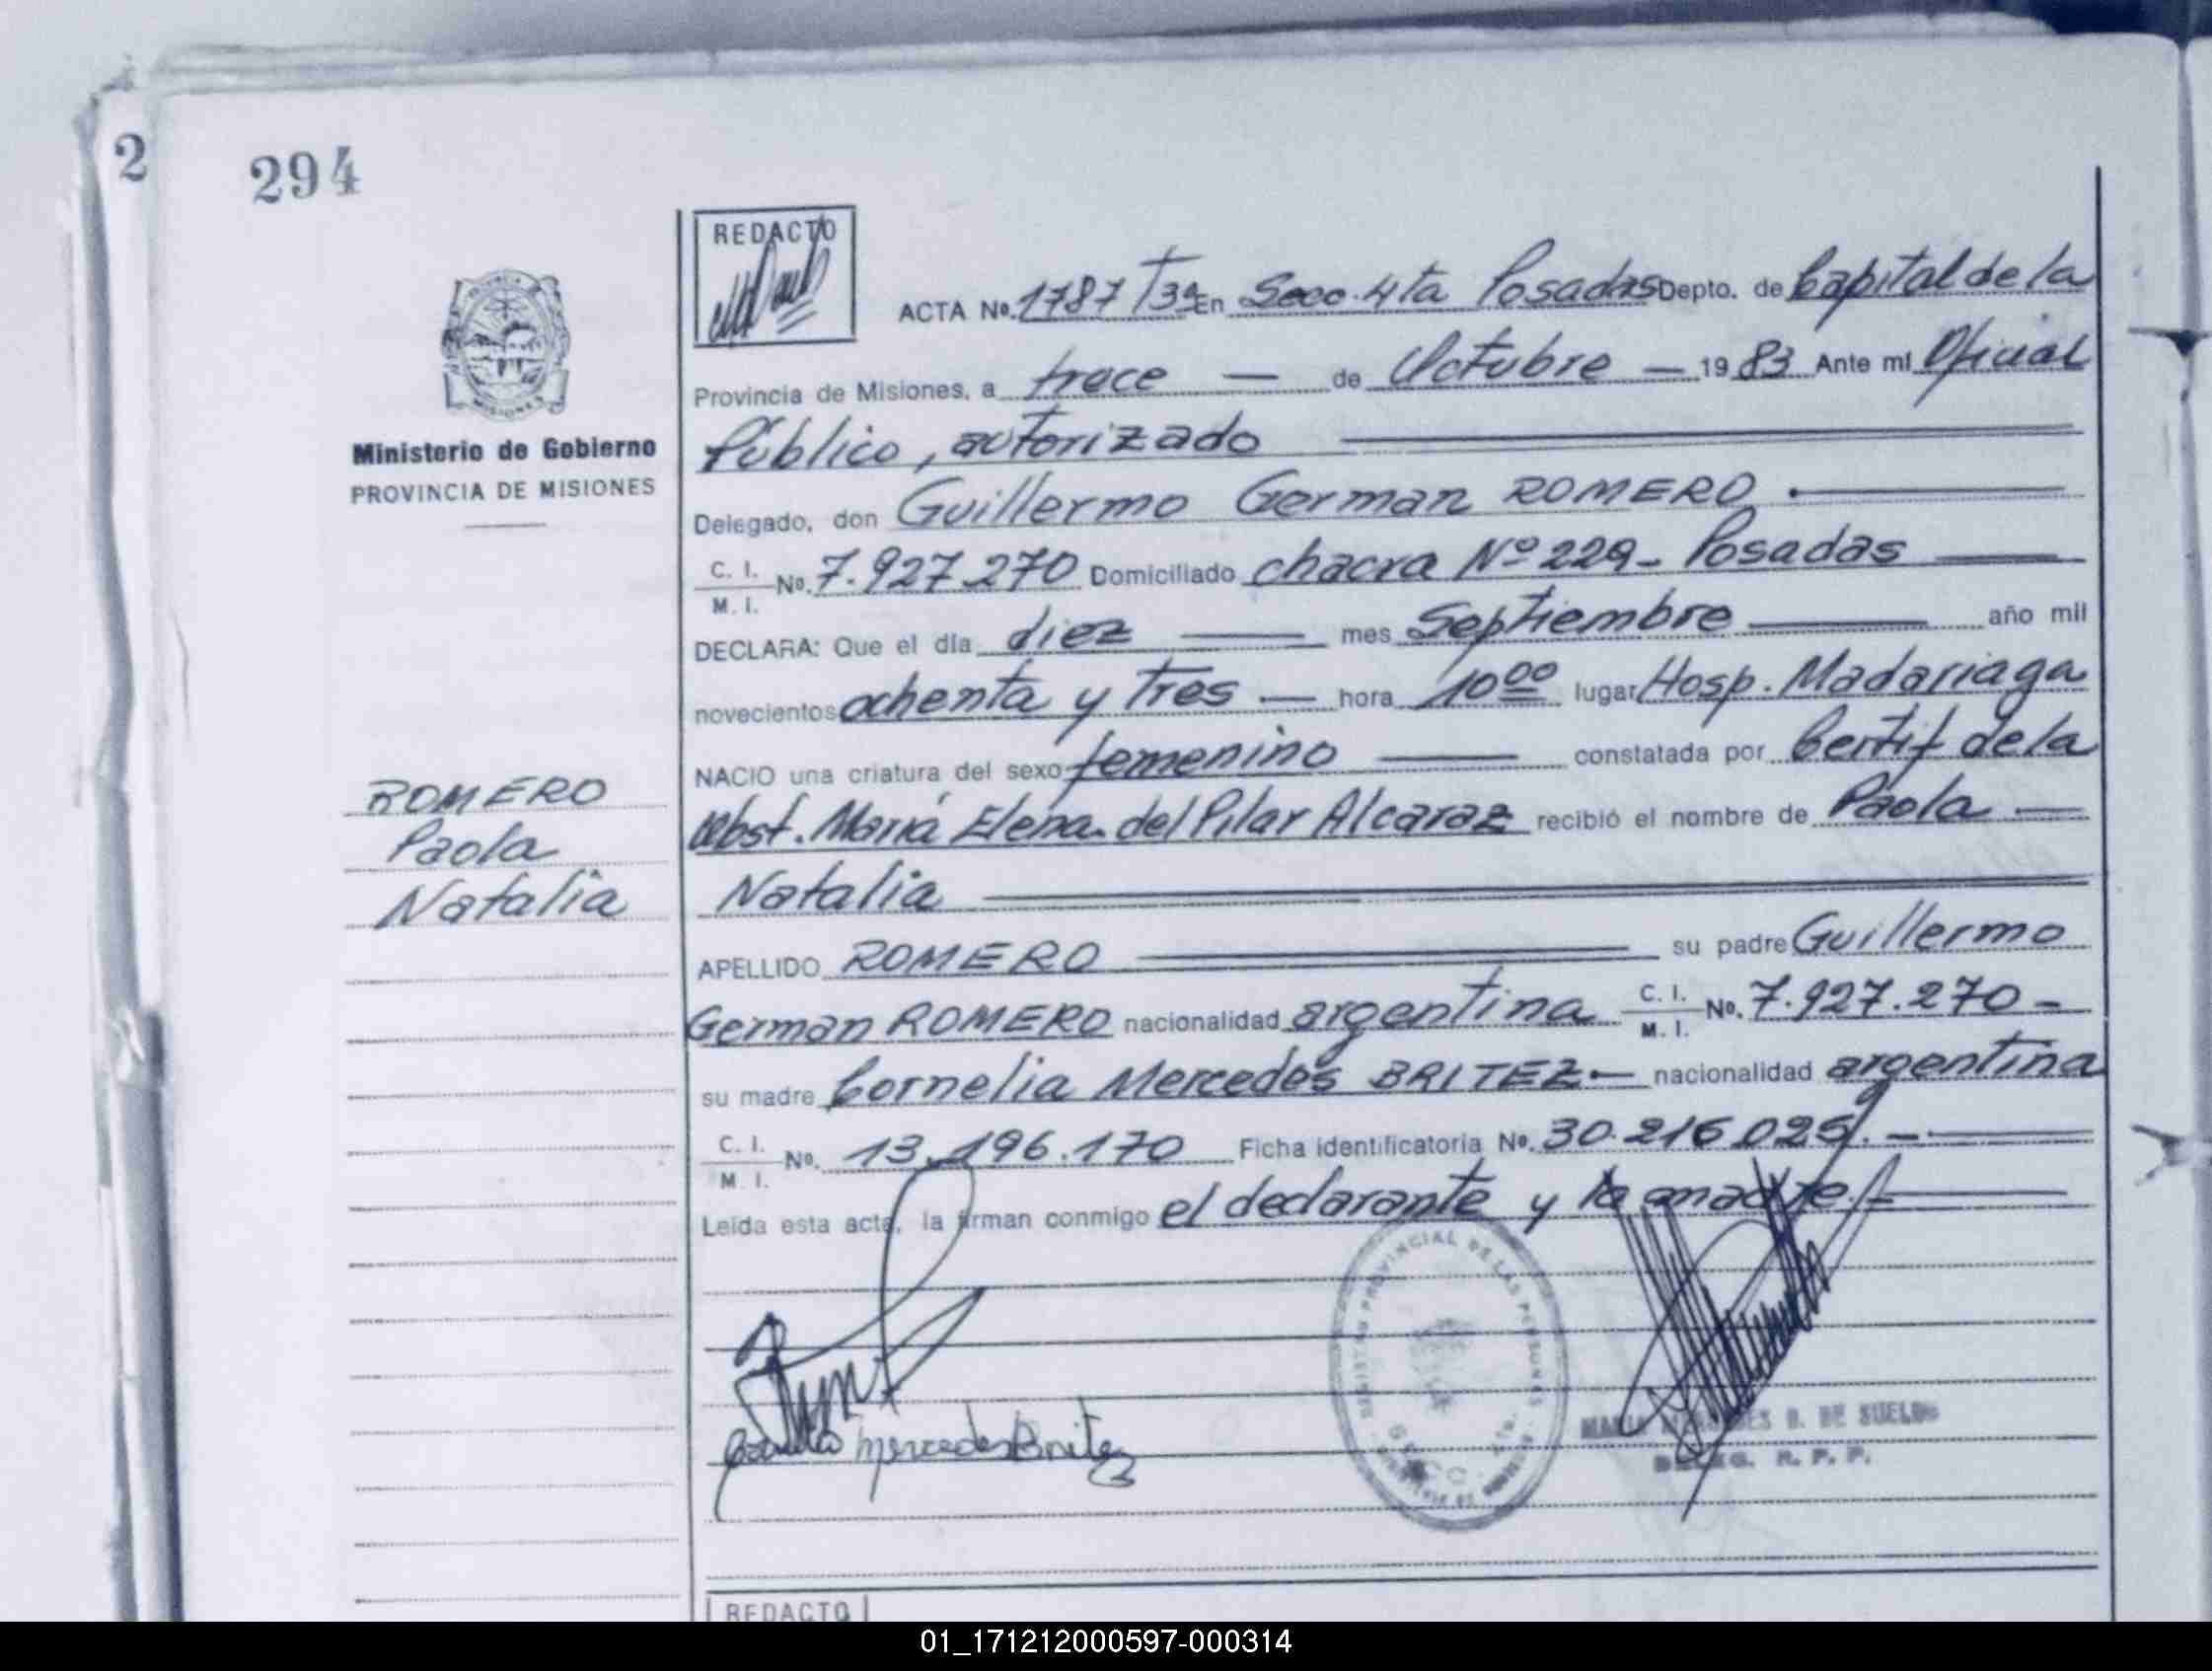 2
294
REDACTO
ACTA No. 1787 T3º En Secc. 4ta Posadas Depto. de Capital de la
Provincia de Misiones, a trece — de Octubre — 1983 Ante mi Oficial
Público, autorizado
Ministerio de Gobierno
PROVINCIA DE MISIONES
Delegado, don Guillermo German ROMERO.
C. I. M. I. No. 7.927.270 Domiciliado chacra Nº 229 - Posadas
DECLARA: Que el día diez — mes Septiembre — año mil
novecientos ochenta y tres — hora 10 00 lugar Hosp. Madariaga
NACIO una criatura del sexo femenino — constatada por Certif de la
Obst. María Elena del Pilar Alcaraz recibió el nombre de Paola —
Natalia
ROMERO
Paola
Natalia
APELLIDO ROMERO — su padre Guillermo
German ROMERO nacionalidad argentina C. I. M. I. No. 7.927.270 -
su madre Cornelia Mercedes BRITEZ — nacionalidad argentina
C. I. M. I. No. 13.196.170 Ficha identificatoria No. 30.216.025. -
Leída esta acta, la firman conmigo el declarante y la madre. -
REGISTRO PROVINCIAL DE LAS PERSONAS
SECC. 4ta.
Mercedes Britez
D. DE SUELDO
DELEG. R. P. P.
REDACTO
01_171212000597-000314